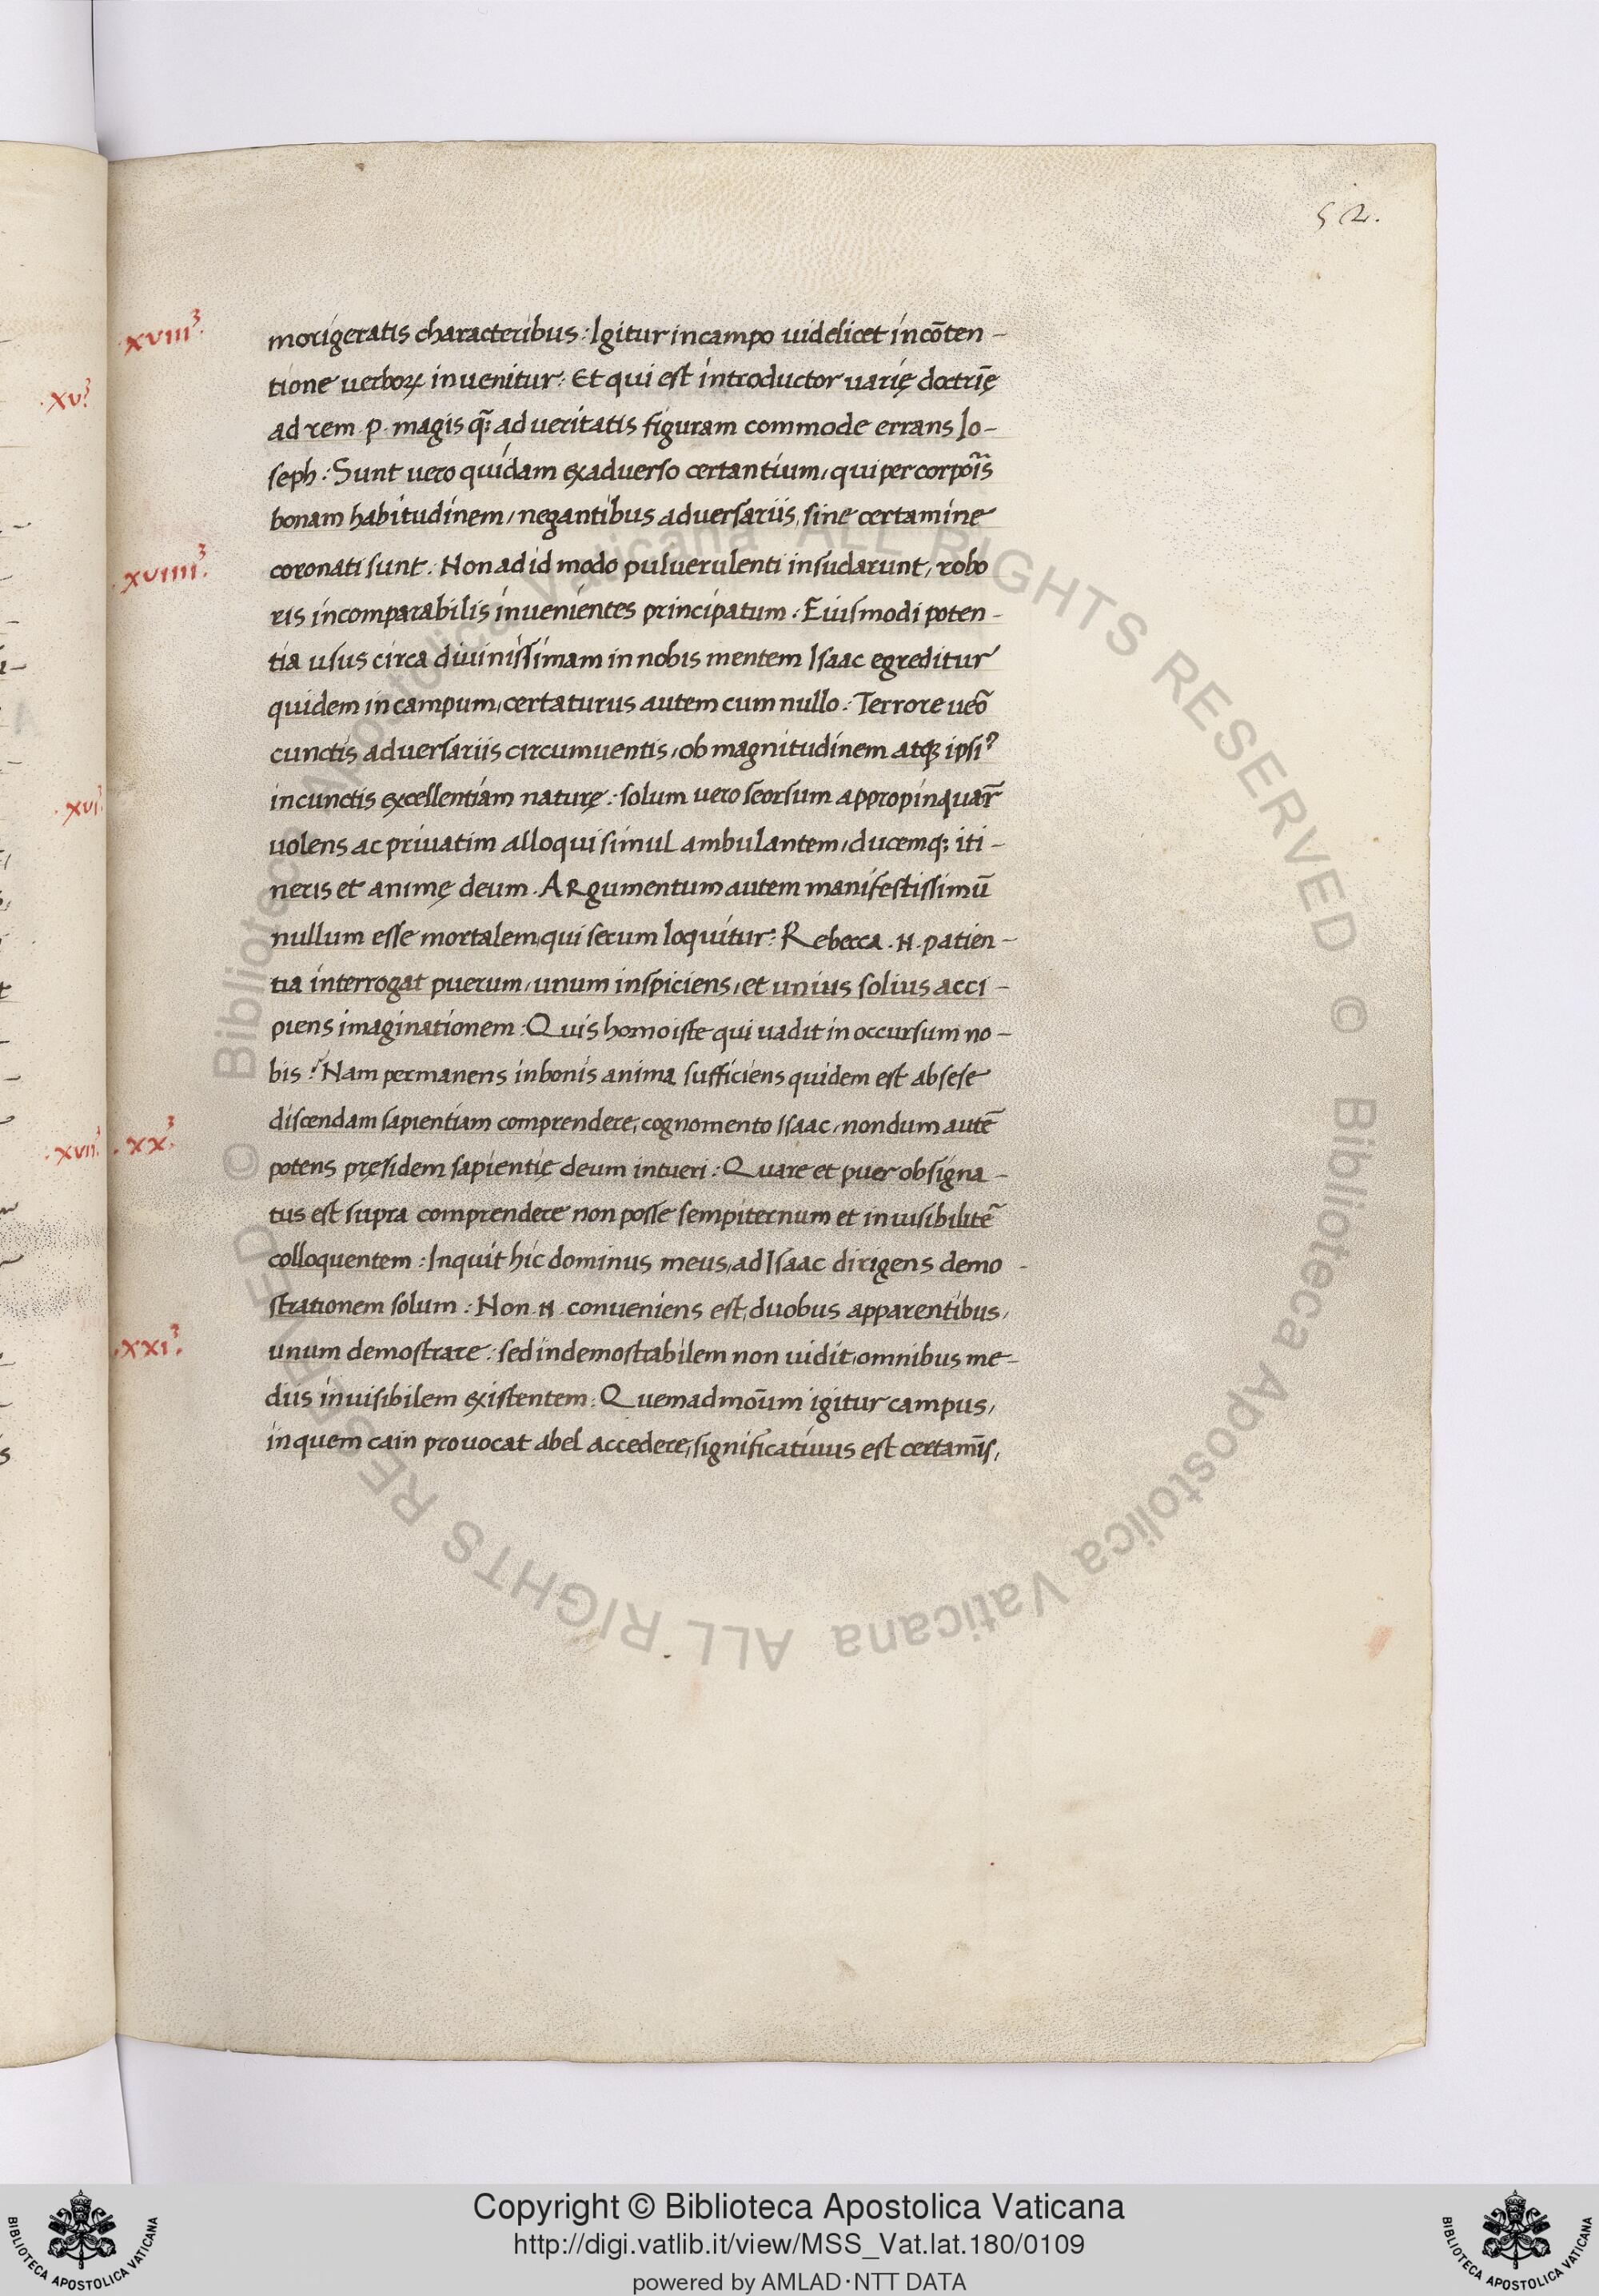 52.
.xviii³.
morigeratis characteribus: Igitur in campo uidelicet in cõten-
tione uerboꝝ inuenitur: Et qui est introductor uarię doctrīę
ad rem .p. magis q̃; ad ueritatis figuram commode errans Io-
seph: Sunt uero quidam ex aduerso certantium, qui per corpor̃is
bonam habitudinem, negantibus aduersariis, sine certamine
.xviiii³.
coronati sunt. Non ad id modo puluerulenti insudarunt, robo
ris incomparabilis inuenientes principatum: Eiusmodi poten-
tia usus circa diuinissimam in nobis mentem Isaac egreditur
quidem in campum, certaturus autem cum nullo: Terrore ueõ
cunctis aduersariis circumuentis, ob magnitudinem atqꝫ ipsiꝰ
in cunctis excellentiam naturę: solum uero seorsum appropinquar̃
.xvi³.
uolens ac priuatim alloqui simul ambulantem, ducemq; iti-
neris et animę deum. Argumentum autem manifestissimũ
nullum esse mortalem, qui secum loquitur: Rebecca .N. patien-
tia interrogat puerum, unum inspiciens, et unius solius acci-
piens imaginationem: Quis homo iste qui uadit in occursum no-
bis? Nam permanens in bonis anima sufficiens quidem est ab sese
.xvii³. .xx³.
discendam sapientiam comprendere, cognomento Isaac, nondum autē
potens pręsidem sapientię deum intueri: Quare et puer obsigna-
tus est supra comprendere non posse sempiternum et inuisibilitē
colloquentem: Inquit hic dominus meus, ad Isaac dirigens demo-
strationem solum: Non .N. conueniens est, duobus apparentibus,
.xxi³.
unum demostrare: sed indemostrabilem non uidit, omnibus me-
diis inuisibilem existentem: Quemadmoūm igitur campus,
in quem cain prouocat abel accedere, significatiuus est certamīs,
.xv³.
© Biblioteca Apostolica Vaticana ALL RIGHTS RESERVED © Biblioteca Apostolica Vaticana ALL RIGHTS RESERVED
Copyright © Biblioteca Apostolica Vaticana
http://digi.vatlib.it/view/MSS_Vat.lat.180/0109
powered by AMLAD·NTT DATA
BIBLIOTECA APOSTOLICA VATICANA
BIBLIOTECA APOSTOLICA VATICANA